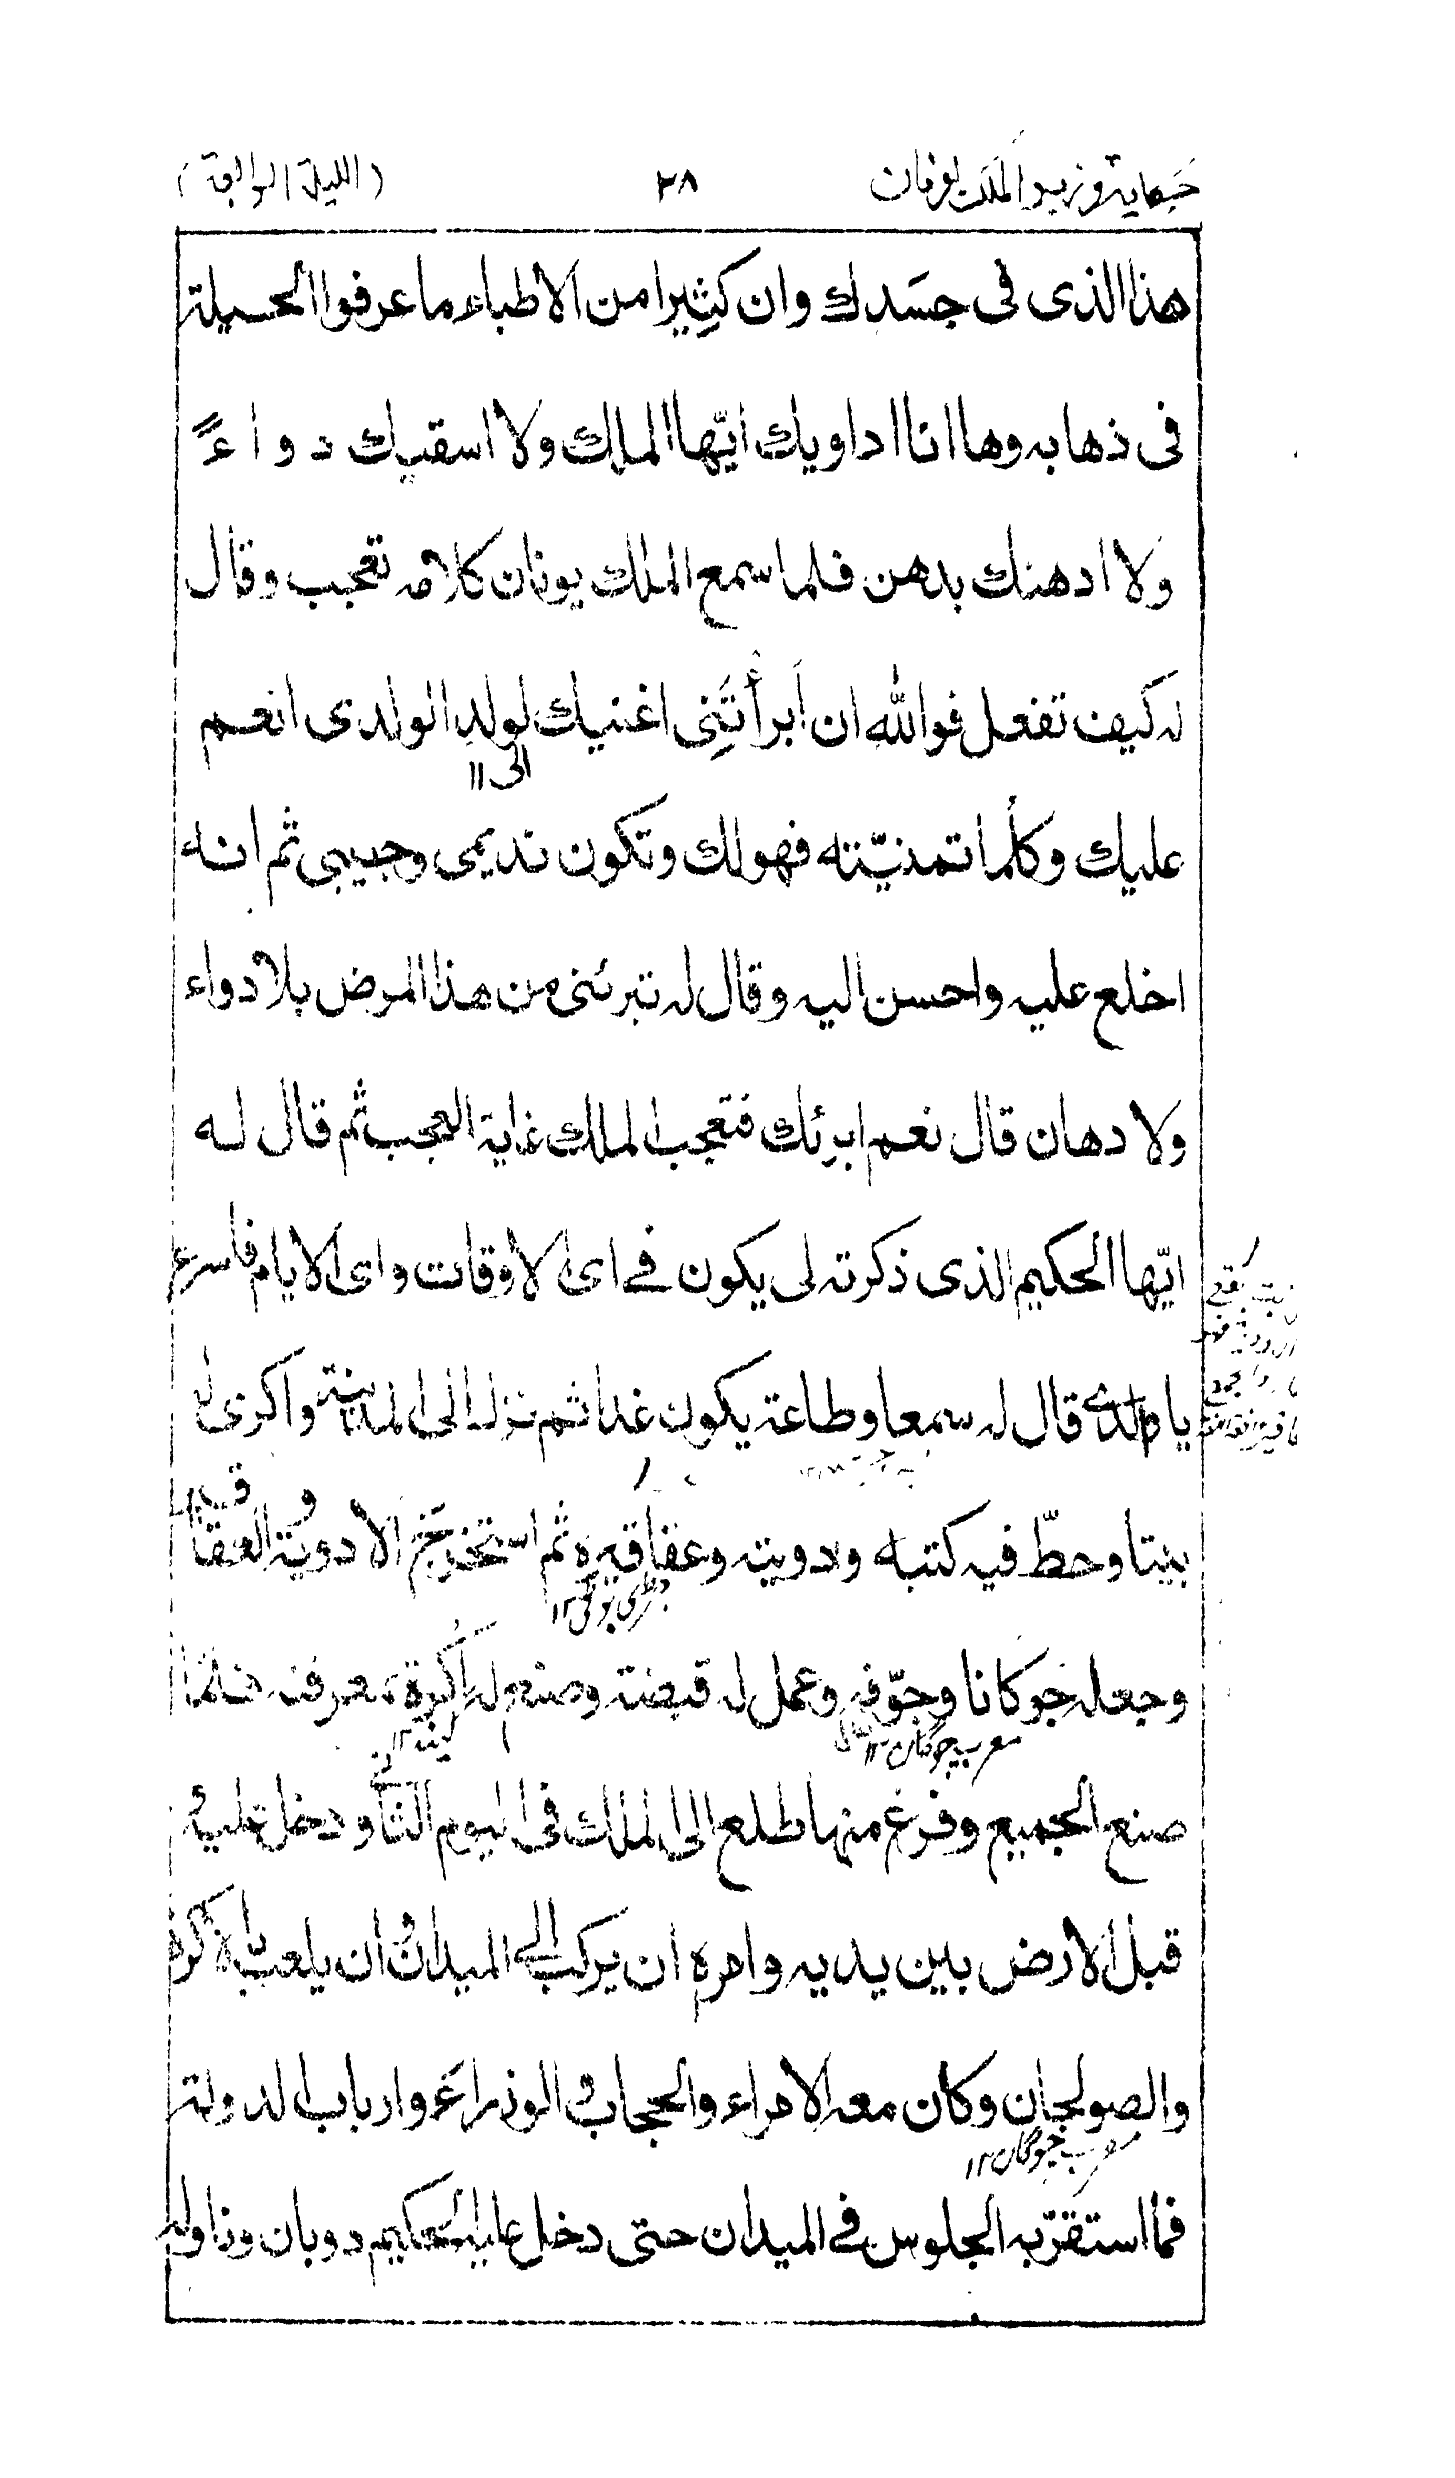 حكاية وزير الملك يونان ٣٨ (الليلة الرابعة)
هذا الذى فى جسَدك وان كثِيرا من الاطباء ما عرفوا الحسيلة
فى ذهابه وها انا اداويك ايّها الملك ولا اسقيك دواءً
ولا ادهنك بدهن فلما سمع الملك يونان كلامه تعجب وقال
له كيف تفعل فوالله ان اَبرأتَنِى اغنيك لولدِ الولدى انعم
الى ١١
عليك وكلما تمنيّته فهو لك وتكون نديمى وحبيبى ثم انه
اخلع عليه واحسن اليه وقال له تبرئنى من هذا المرض بلا دواء
ولا دهان قال نعم ابرِئك فتعجب الملك غاية العجب ثم قال له
ايّها الحكيم الذى ذكرته لى يكون فے اى الاوقات واى الايام فاسرع
يا ولدے قال له سمعا وطاعة يكون غدا ثم نزل الى المدينة واكرى له
بيتا وحطّ فيه كتبه ودويته وعقاقيره ثم استخرَجَ الادوية والعقاقير
وجعله جوكانا وجوّفه وعمل له قبضة وصنع له اُكرة بمعرفته فلما
معرب چوگان ١٢
صنع الجميع وفرغ منها طلع الى الملك فى اليوم الثانى ودخل عليه و
قبل الارض بين يديه وامره ان يركب الى الميدان وان يلعب بالاكرة
والصولجان وكان معه الامراء والحجاب والوزراءَ وارباب الدولة
معرب چوگان ١٢
فما استقرّ به الجلوس فے الميدان حتى دخل عليه الحكيم دوبان وناوله